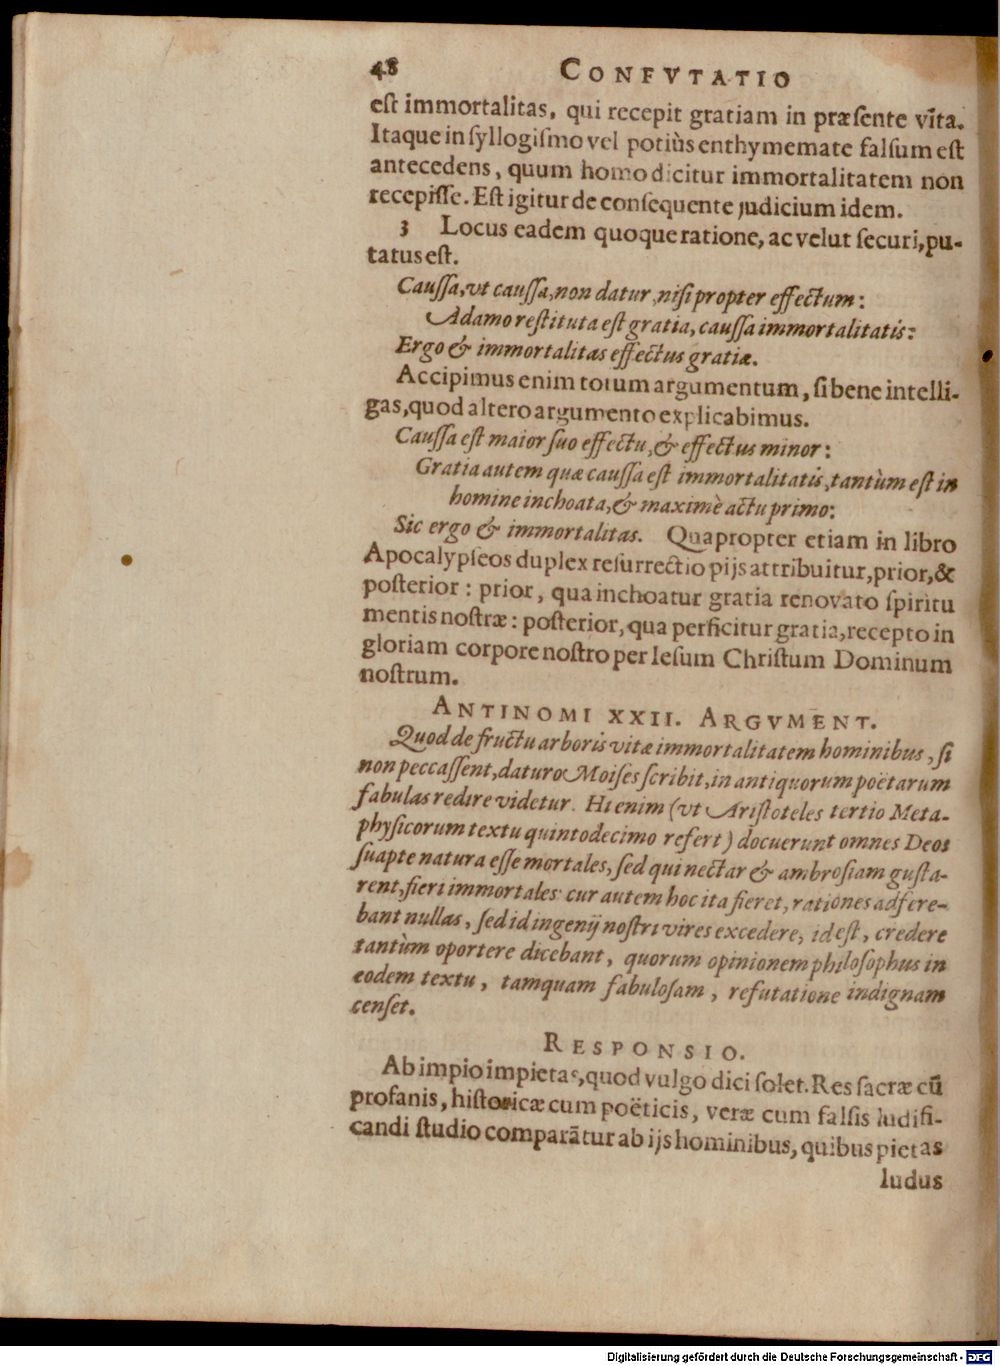 48 CONFVTATIO
eſt immortalitas, qui recepit gratiam in præſente vita.
Itaque in ſyllogiſmo vel potiùs enthymemate falſum eſt
antecedens, quum homo dicitur immortalitatem non
recepiſſe. Eſt igitur de conſequente judicium idem.
3 Locus eadem quoque ratione, ac velut ſecuri, pu-
tatus eſt.
Cauſſa, vt cauſſa, non datur, niſi propter effectum:
Adamo reſtituta eſt gratia, cauſſa immortalitatis:
Ergo & immortalitas effectus gratiæ.
Accipimus enim totum argumentum, ſi bene intelli-
gas, quod altero argumento explicabimus.
Cauſſa eſt maior ſuo effectu, & effectus minor:
Gratia autem quæ cauſſa eſt immortalitatis, tantùm eſt in
homine inchoata, & maximè actu primo:
Sic ergo & immortalitas. Quapropter etiam in libro
Apocalypſeos duplex reſurrectio pijs attribuitur, prior, &
poſterior: prior, qua inchoatur gratia renovato ſpiritu
mentis noſtræ: poſterior, qua perficitur gratia, recepto in
gloriam corpore noſtro per Ieſum Chriſtum Dominum
noſtrum.
ANTINOMI XXII. ARGVMENT.
Quod de fructu arboris vitæ immortalitatem hominibus, ſi
non peccaſſent, daturo Moiſes ſcribit, in antiquorum poëtarum
fabulas redire videtur. Hi enim (vt Ariſtoteles tertio Meta-
phyſicorum textu quintodecimo refert) docuerunt omnes Deos
ſuapte natura eſſe mortales, ſed qui nectar & ambroſiam guſta-
rent, fieri immortales: cur autem hoc ita fieret, rationes adfere-
bant nullas, ſed id ingenij noſtri vires excedere, id eſt, credere
tantùm oportere dicebant, quorum opinionem philoſophus in
eodem textu, tamquam fabuloſam, refutatione indignam
cenſet.
RESPONSIO.
Ab impio impietas, quod vulgo dici ſolet. Res ſacræ cū
profanis, hiſtoricæ cum poëticis, veræ cum falſis ludifi-
candi ſtudio comparātur ab ijs hominibus, quibus pietas
ludus
Digitalisierung gefördert durch die Deutsche Forschungsgemeinschaft - DFG